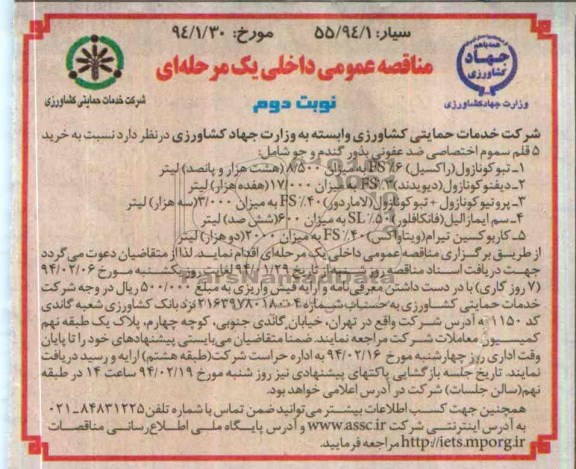 سیار: ۵۵/۹۴/۱ مورخ: ۹۴/۱/۳۰
همه با هم
جهاد
کشاورزی
وزارت جهاد کشاورزی
مناقصه عمومی داخلی یک مرحله‌ای
نوبت دوم
شرکت خدمات حمایتی کشاورزی
شرکت خدمات حمایتی کشاورزی وابسته به وزارت جهاد کشاورزی درنظر دارد نسبت به خرید
۵ قلم سموم اختصاصی ضد عفونی بذور گندم و جو شامل:
۱ـ تبوکونازول (راکسیل) ۶٪ FS به میزان ۸/۵۰۰ (هشت هزار و پانصد) لیتر
۲ـ دیفنوکونازول (دیویدند) ۳٪ FS به میزان ۱۷/۰۰۰ (هفده هزار) لیتر
۳ـ پروتیوکونازول + تبوکونازول (لاماردور) ۴۰٪ FS به میزان ۳/۰۰۰ (سه هزار) لیتر
۴ـ سم ایمازالیل (فانکافلور) ۵۰٪ SL به میزان ۶۰۰ (شش صد) لیتر
۵ـ کاربوکسین تیرام (ویتاواکس) ۴۰٪ FS به میزان ۲۰۰۰ (دو هزار) لیتر
از طریق برگزاری مناقصه عمومی داخلی یک مرحله‌ای اقدام نماید. لذا از متقاضیان دعوت می‌گردد
جهت دریافت اسناد مناقصه از تاریخ ۹۴/۰۱/۲۹ روز یکشنبه مورخ ۹۴/۰۲/۰۶
(۷ روز کاری) با در دست داشتن معرفی‌نامه و ارایه فیش واریزی به مبلغ ۵۰۰/۰۰۰ ریال در وجه شرکت
خدمات حمایتی کشاورزی به حساب شماره نزد بانک کشاورزی شعبه گاندی
کد ۱۱۵۰ به آدرس شرکت واقع در تهران، خیابان گاندی جنوبی، کوچه چهارم، پلاک یک طبقه نهم
کمیسیون معاملات شرکت مراجعه نمایند. ضمنا متقاضیان می‌بایستی پیشنهادهای خود را تا پایان
وقت اداری روز چهارشنبه مورخ ۹۴/۰۲/۱۶ به اداره حراست شرکت (طبقه هشتم) ارایه و رسید دریافت
نمایند. تاریخ جلسه بازگشایی پاکتهای پیشنهادی نیز روز شنبه مورخ ۹۴/۰۲/۱۹ ساعت ۱۴ در طبقه
نهم (سالن جلسات) شرکت در آدرس اعلامی خواهد بود.
همچنین جهت کسب اطلاعات بیشتر می‌توانید ضمن تماس با شماره تلفن ۸۴۸۳۱۲۲۵-۰۲۱
به آدرس اینترنتی شرکت www.assc.ir و آدرس پایگاه ملی اطلاع‌رسانی مناقصات
http://iets.mporg.ir مراجعه فرمایید.